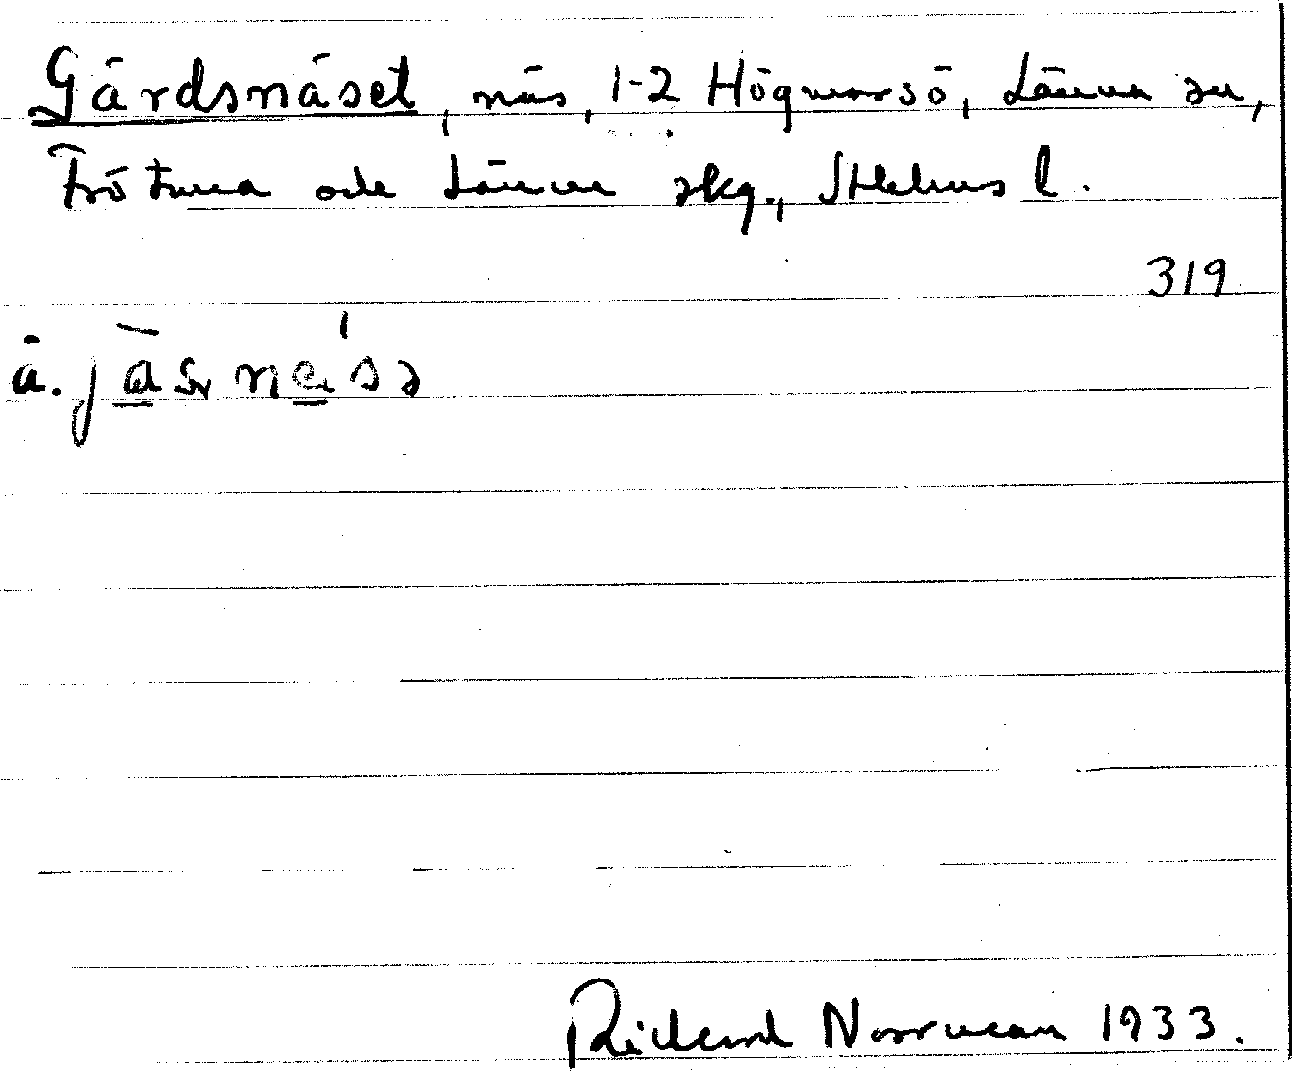 Gärdsnäset, näs, 1-2 Högmarsö, Länna sn,
Frötuna och Länna skg., Sthlms l.
319
å. jäsnesə
Rickard Norrman 1933.